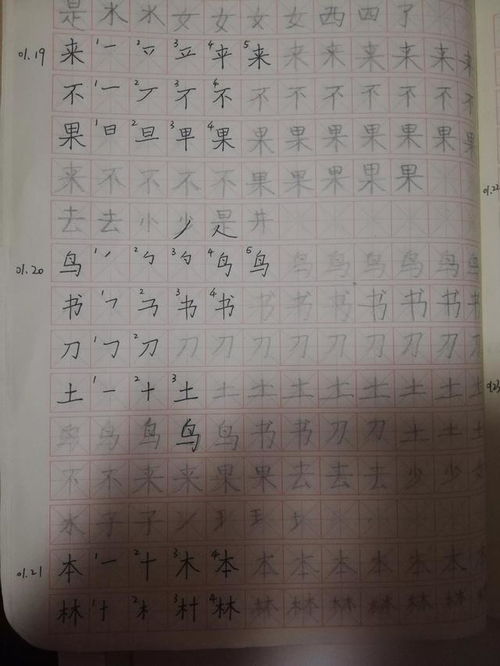 是 水 水 女 女 女 女 西 四 了
01.19 来 1 一 2 3 4 5 来 来 来 来 来 来 来
不 1 一 2 丆 3 4 不 不 不 不 不 不 不 不
果 1 日 2 旦 3 早 4 果 果 果 果 果 果 果 果
来 不 不 不 不 果 果 果 果 果
去 去 小 少 是 井
01.20 鸟 1 丿 2 3 4 5 鸟 鸟 鸟 鸟 鸟 鸟 鸟
书 1 乛 2 3 书 4 书 书 书 书 书 书 书 书
刀 1 𠃌 2 刀 刀 刀 刀 刀 刀 刀 刀 刀 刀
土 1 一 2 十 3 土 土 土 土 土 土 土 土 土
鸟 鸟 鸟 鸟 鸟 书 书 刀 刀 土 土 土
不 不 来 来 果 果 去 去 去 少 少
水 子 子
01.21 本 1 一 2 十 3 木 4 本 本 本 本 本 本 本 本
林 1 十 2 木 3 村 4 林 林 林 林 林 林 林 林
01.22
01.23